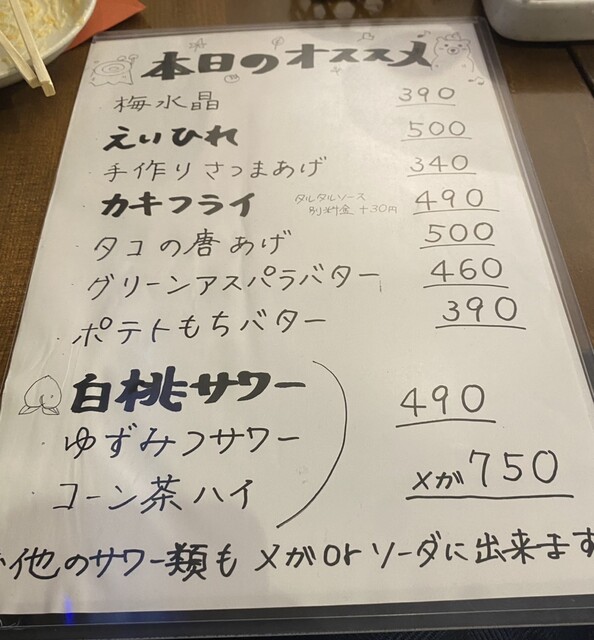 本日のオススメ
梅水晶 390
えいひれ 500
手作りさつまあげ 340
カキフライ タルタルソース 別料金 +30円 490
タコの唐あげ 500
グリーンアスパラバター 460
ポテトもちバター 390
白桃サワー 490
ゆずみつサワー
コーン茶ハイ メガ750
他のサワー類も メガorソーダに出来ます